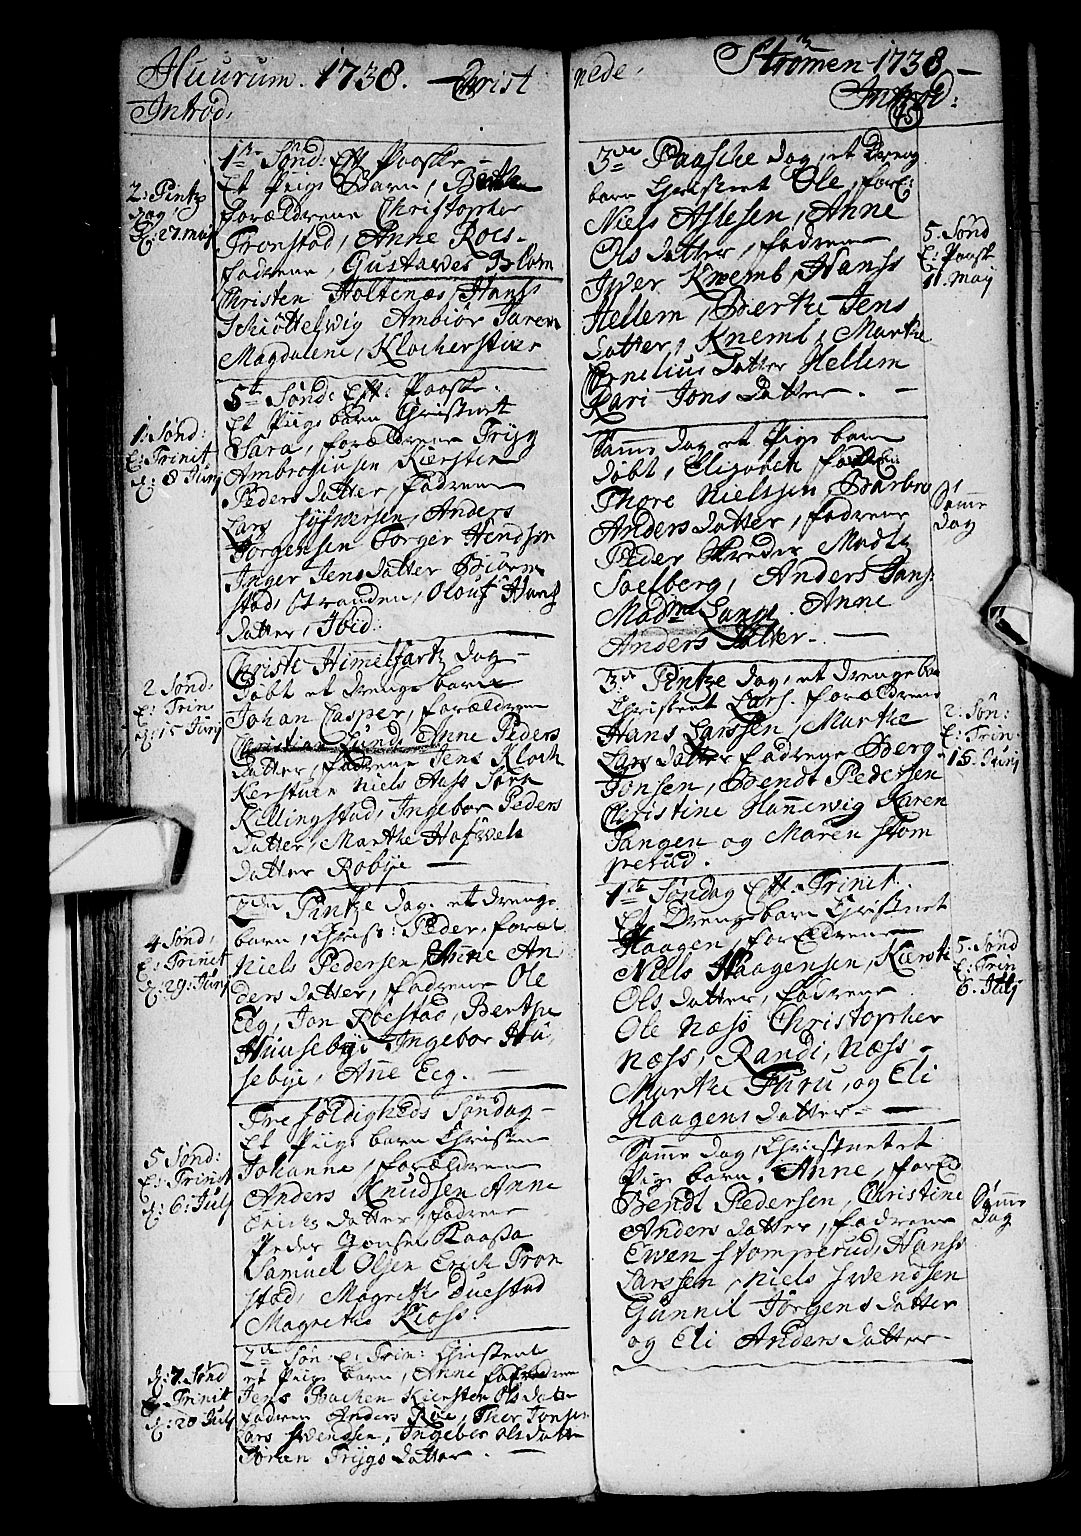 Huurum. 1738. Christ:
Introd.
1ste Sønd: Eft Paaske -
Et Piigs Barn, Berthe
forældrene Christopher
Tronstad, Anne Roes-
fadrene, Gustawes Blom
Christen Holtenæs, Hanss
Schiøttelwig Ambiør Saren
Magdalene, Klocherstuen
2: Pintz
dag,
d: 27. maj
5te Sønd: Eft: Paaske.
Et Piigs barn Christnet
Sara, forældrene Tryg
Ambrosiusen, Kiersten
Peders datter, fadrene
Lars Syfwersen, Anders
Jørgensen Torger Hendson
Inger Jens datter Biørn
stad, Stranden, Olouf Hans
datter, Ibid:
1. Sønd:
E: Trinit
d: 8 Junj
Christi Himelfartz dag -
døbt et drenge barn
Johan Casper, forældren
Christian Lund, Anne Peders
datter, fadrene Jens Kloch
Kerstuen Niels Aass Sara
Killingstad, Ingebor Peders
datter, Marthe Hafwels
datter Røbye -
2 Sønd.
E: Trin
d: 15 Junj
2den Pintze dag, et drenge
barn, Christ: Peder, foræl
Niels Pedersen Anne An
ders datter, fadrene Ole
Eeg, Jon Røestad, Berthe
Huusebye Ingebor Hu,
sebye, Ane Eeg. -
4 Sønd,
E: Trinit
d: 29: Junj
Trefoldigheds Søndag -
Et Piigs barn Christnet
Johanne, forældrene
Anders Knudsen Anne
Erichs datter, fadrene
Peder Jonsen Kaassa
Samuel Olsen Erich Tron
stad, Magrethe Duestad
Magrethe Kioss:
5 Sønd:
E: Trinit
d: 6: Julj
2de Søn E: Trin: Christnet
et Piigs barn, Anne forældrene
Jens Bachen Kiersten Ols datter
fadrene Anders Røe, Thor Jonsen
Lars Swendsen, Ingebor Ols datter
Søren Trygs datter.
d: 7. Sønd
E: Trinit
d: 20 Julj
nede. Strømen 1738 -
Introd:
45
3de Paasche dag, et Dreng
barn Christnet Ole, foræl:
Niels Aslesen, Anne
Ols datter, fadrene
Iwer Knemb, Hanss
Hellem, Berthe Jens
datter, Knemb, Marthe
Cornelius datter Hellem
Kari Jons datter. -
5. Sønd
E: Paask
11. maj
Same dag et Pigs barn
døbt, Elizabeth forældre:
Thore Nielssen, Barbro
Anders datter, fadrene
Peder Skreder Madtz
Soelberg, Anders Hans:
Madme Lange. Anne
Anders datter. -
Same
dag
3de Pintze dag, et drengebar
Christnet Lars. forældrene
Hans Larssen, Marthe
Lars datter fadrene Berg
Jonsen, Bendt Pedersen
Christine Hannewig Karen
Tangen og Maren Stom
perud.
2: Søn:
E: Trin
15. Junj
1ste Søndag Eft: Trinit.
Et Drengebarn Christnet
Haagen, forældrene
Niels Haagensen, Kiersti
Ols datter, fadrene
Ole Næss Christopher
Næss, Randi, Næss -
Marthe Thru, og Eli
Haagens datter. -
5. Sønd
E: Trin
6. Julj
Same dag, Christnetet
Pige barn, Anne, foræl
Bendt Pedersen, Christine
Anders datter, fadrene
Ewen Stomperud, Hanss
Larssen, Niels Swendsen
Gunnil Jørgens datter
og Eli Anders datter -
Same
dag